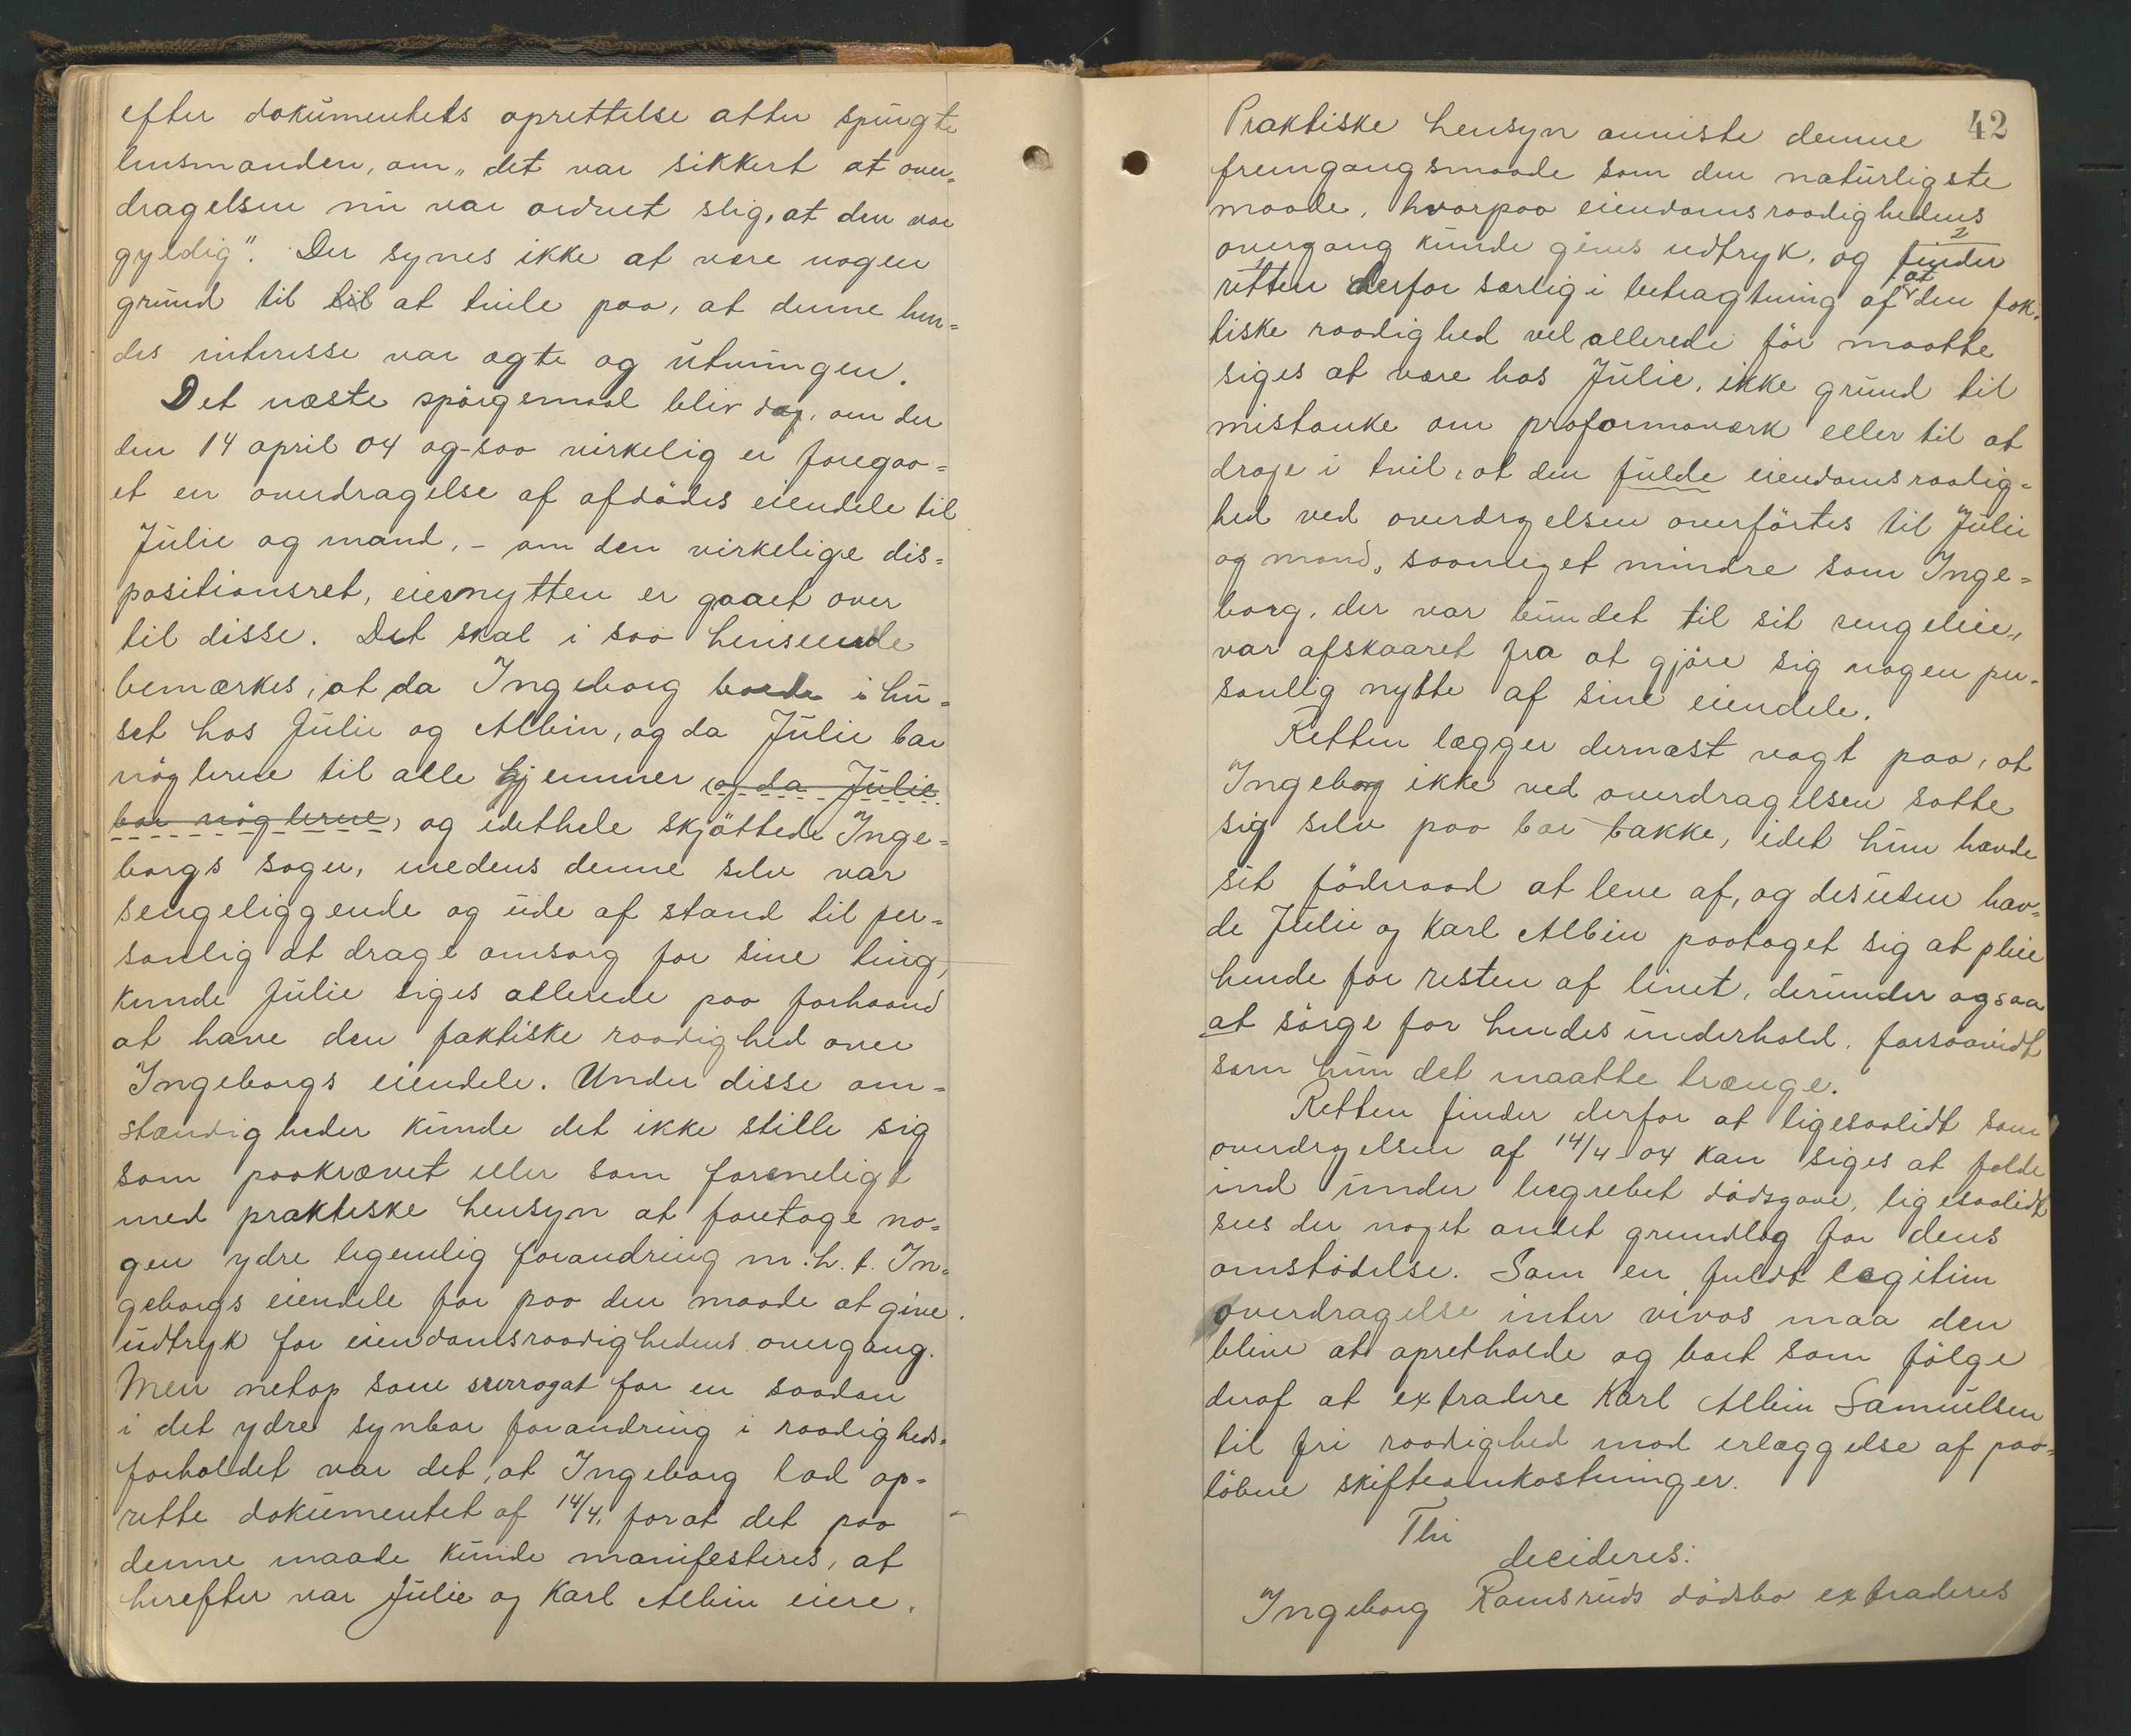 efter dokumentets oprettelse atter spurgte
lensmanden, om „det var sikkert at over-
dragelsen nu var ordnet slig, at den var
gyldig". Der synes ikke at være nogen
grund til til at tvile paa, at denne hen-
des interesse var ægte og utvungen.
Det næste spörgsmaal blir dog, om der
den 14 april 04 og-saa virkelig er foregaa-
et en overdragelse af afdödes eiendele til
Julie og mand, - om den virkelige dis-
positionsret, eiernytten er gaaet over
til disse. Det skal i saa henseende
bemærkes, at da Ingeborg boede i hu-
set hos Julie og Albin, og da Julie bar
nöglerne til alle gjemmer og da Julie
bar nöglerne, og idethele skjöttede Inge-
borgs sager, medens denne selv var
sengeliggende og ude af stand til per-
sonlig at drage omsorg for sine ting,
kunde Julie siges allerede paa forhaand
at have den faktiske raadighed over
Ingeborgs eiendele. Under disse om-
stændigheder kunde det ikke stille sig
som paakrævet eller som foreneligt
med praktiske hensyn at foretage no-
gen ydre legemlig forandring m.h.t. In-
geborgs eiendele for paa den maade at give
udtryk for eiendomsraadighedens overgang.
Men netop som surrogat for en saadan
i det ydre synbar forandring i raadigheds-
forholdet var det, at Ingeborg lod op-
rette dokumentet af 14/4, forat det paa
denne maade kunde manifesteres, at
herefter var Julie og Karl Albin eiere.
42
Praktiske hensyn anviste denne
fremgangsmaade som den naturligste
maade, hvorpaa eiendomsraadighedens
overgang kunde gives udtryk, og finder 2
retten derfor særlig i betragtning af at den fak-
tiske raadighed vel allerede för maatte
siges at være hos Julie, ikke grund til
mistanke om proformaværk eller til at
drage i tvil, at den fulde eiendomsraadig-
hed ved overdragelsen overförtes til Julie
og mand, saameget mindre som Inge-
borg, der var bundet til sit sengeleie,
var afskaaret fra at gjöre sig nogen per-
sonlig nytte af sine eiendele.
Retten lægger dernæst vægt paa, at
Ingeborg ikke ved overdragelsen satte
sig selv paa bar bakke, idet hun havde
sit föderaad at leve af, og desuten hav-
de Julie og Karl Albin paataget sig at pleie
hende for resten af livet, derunder ogsaa
at sörge for hendes underhold, forsaavidt
som hun det maatte trænge.
Retten finder derfor at ligesaalidt som
overdragelsen af 14/4 04 kan siges at falde
ind under begrebet dödsgave, ligesaalidt
sees der noget andet grundlag for dens
omstödelse. Som en fuldt legitim
overdragelse inter vivos maa den
blive at opretholde og boet som fölge
deraf at extradere Karl Albin Samuelsen
til fri raadighed mod erlæggelse af paa-
löbne skifteomkostninger.
Thi
decideres:
Ingeborg Ramsruds dödsbo extraderes